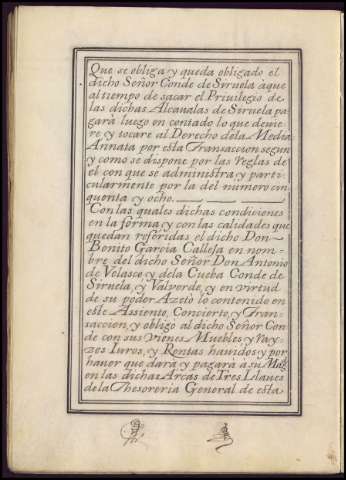 Que se obliga y queda obligado el
dicho Señor Conde de Siruela a que
al tiempo de sacar el Privilegio de
las dichas Alcaualas de Siruela pa
gará luego en contado lo que deuie
re y tocare al Derecho de la Media
Annata por esta Transaccion segun
y como se dispone por las reglas de
el con que se administra y parti
cularmente por la del numero cin
quenta y ocho.
Con las quales dichas condiciones
en la forma y con las calidades que
quedan referidas el dicho Don
Benito Garcia Calleja en nom-
bre del dicho Señor Don Antonio
de Velasco y de la Cueba Conde de
Siruela, y Valverde, y en virtud
de su poder Azeto lo contenido en
este Assiento, Concierto, y Tran-
saccion, y obligo al dicho Señor Con
de con sus vienes Muebles y Ray-
zes Iuros, y Rentas hauidos y por
hauer que dará y pagará a su Mag.
en las dichas Arcas de Tres Llaues
de la Thesoreria General de esta